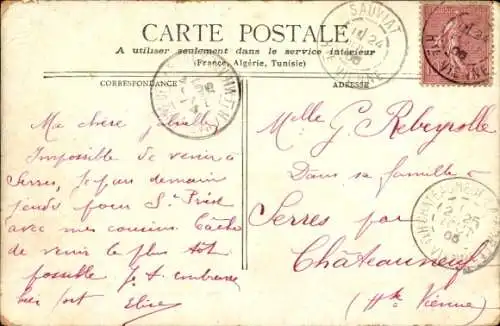 CARTE POSTALE
A utiliser seulement dans le service intérieur
(France, Algérie, Tunisie)
CORRESPONDANCE
ADRESSE
SAUVIAT
24
06
HTE VIENNE
Ma chère
Impossible de venir à
Serres, je pars demain
jeudi pour St Priest
avec mes cousins. Tâche
de venir le plus tôt
possible je t. embrasse
bien fort Elise
Melle G. Rebeyrolle
Dans sa famille à
Serres par
Châteauneuf
(Hte Vienne)